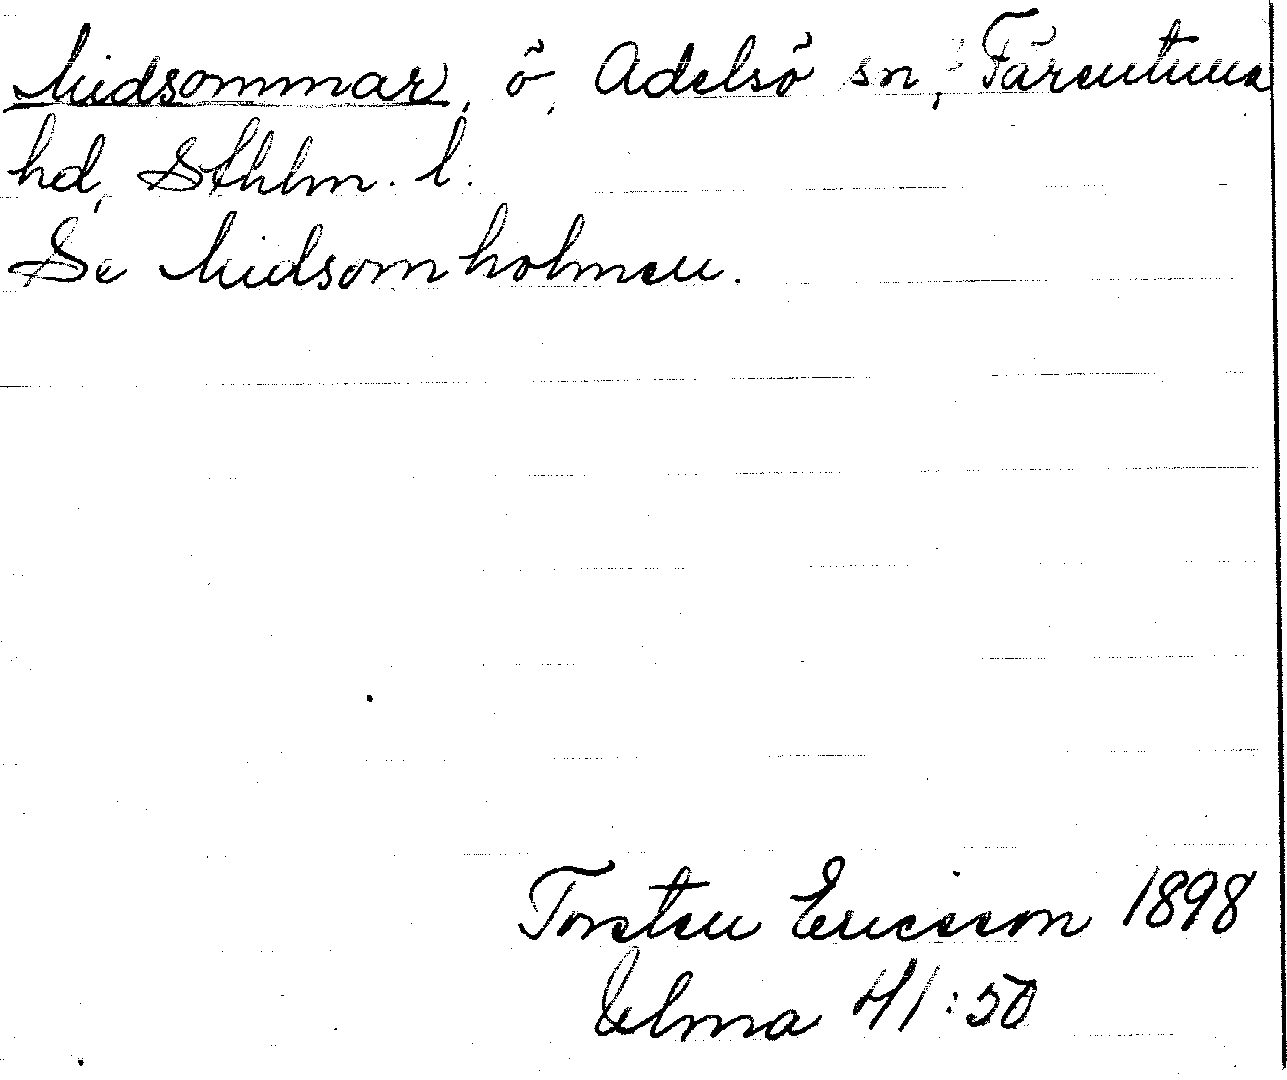 Midsommar, ö, Adelsö sn, Färentuna
hd, Sthlm. l.
Se Midsomholmen.
Torsten Ericsson 1898
Ulma 41:50